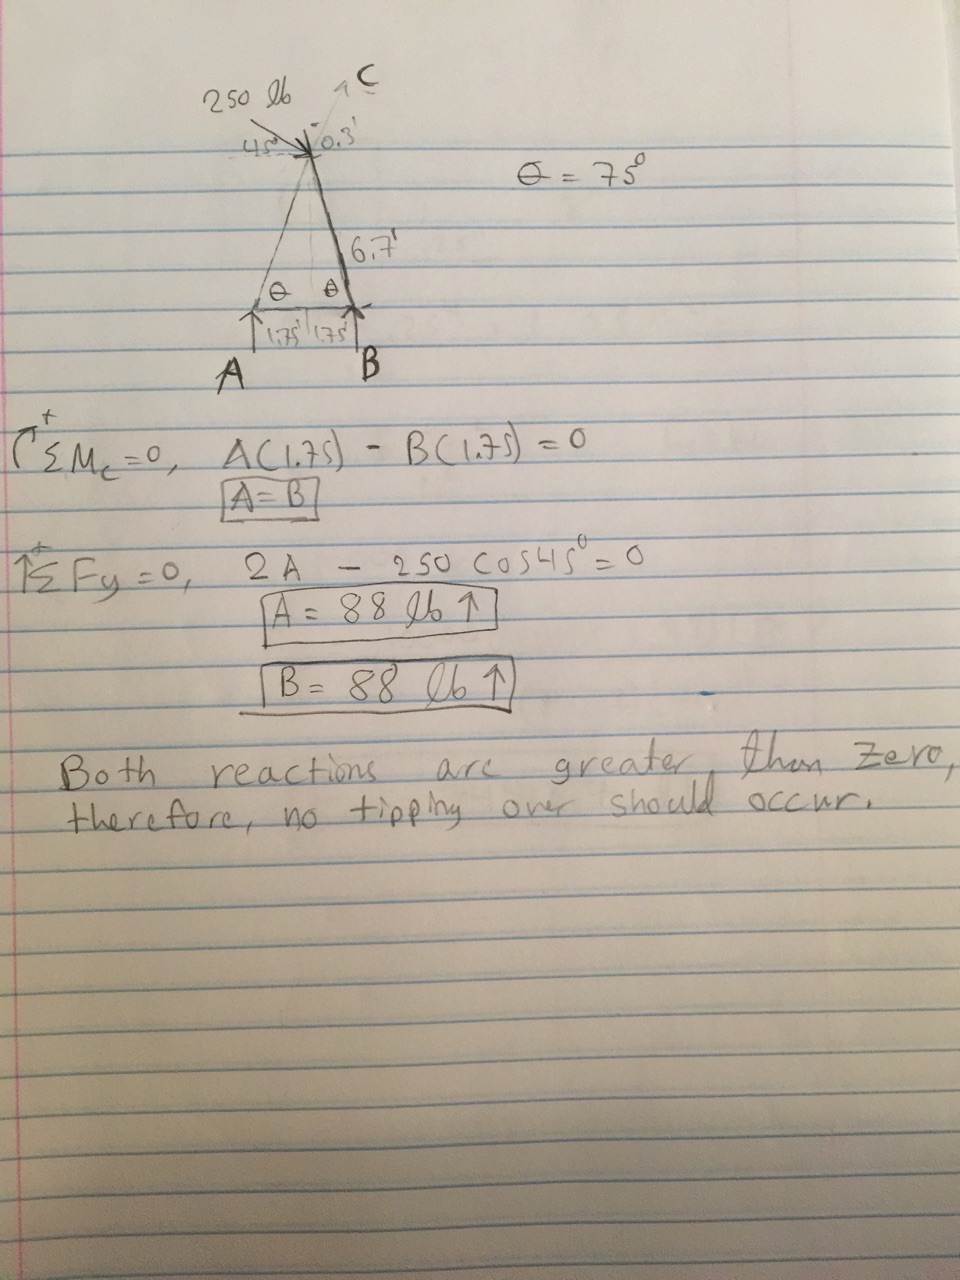 C
250 lb
45° 0.3'
θ = 75°
6.7'
θ θ
1.75' 1.75'
A B
+ ΣM_C = 0, A(1.75) - B(1.75) = 0
A = B
↑+ ΣFy = 0, 2A - 250 cos45° = 0
A = 88 lb ↑
B = 88 lb ↑
Both reactions are greater than zero,
therefore, no tipping over should occur.